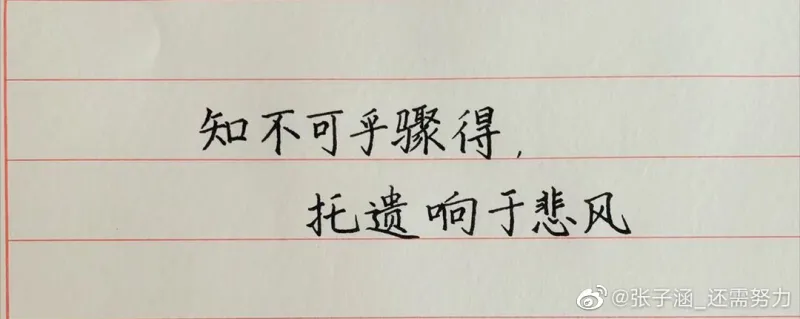 知不可乎骤得,
托遗响于悲风
@张子涵_还需努力